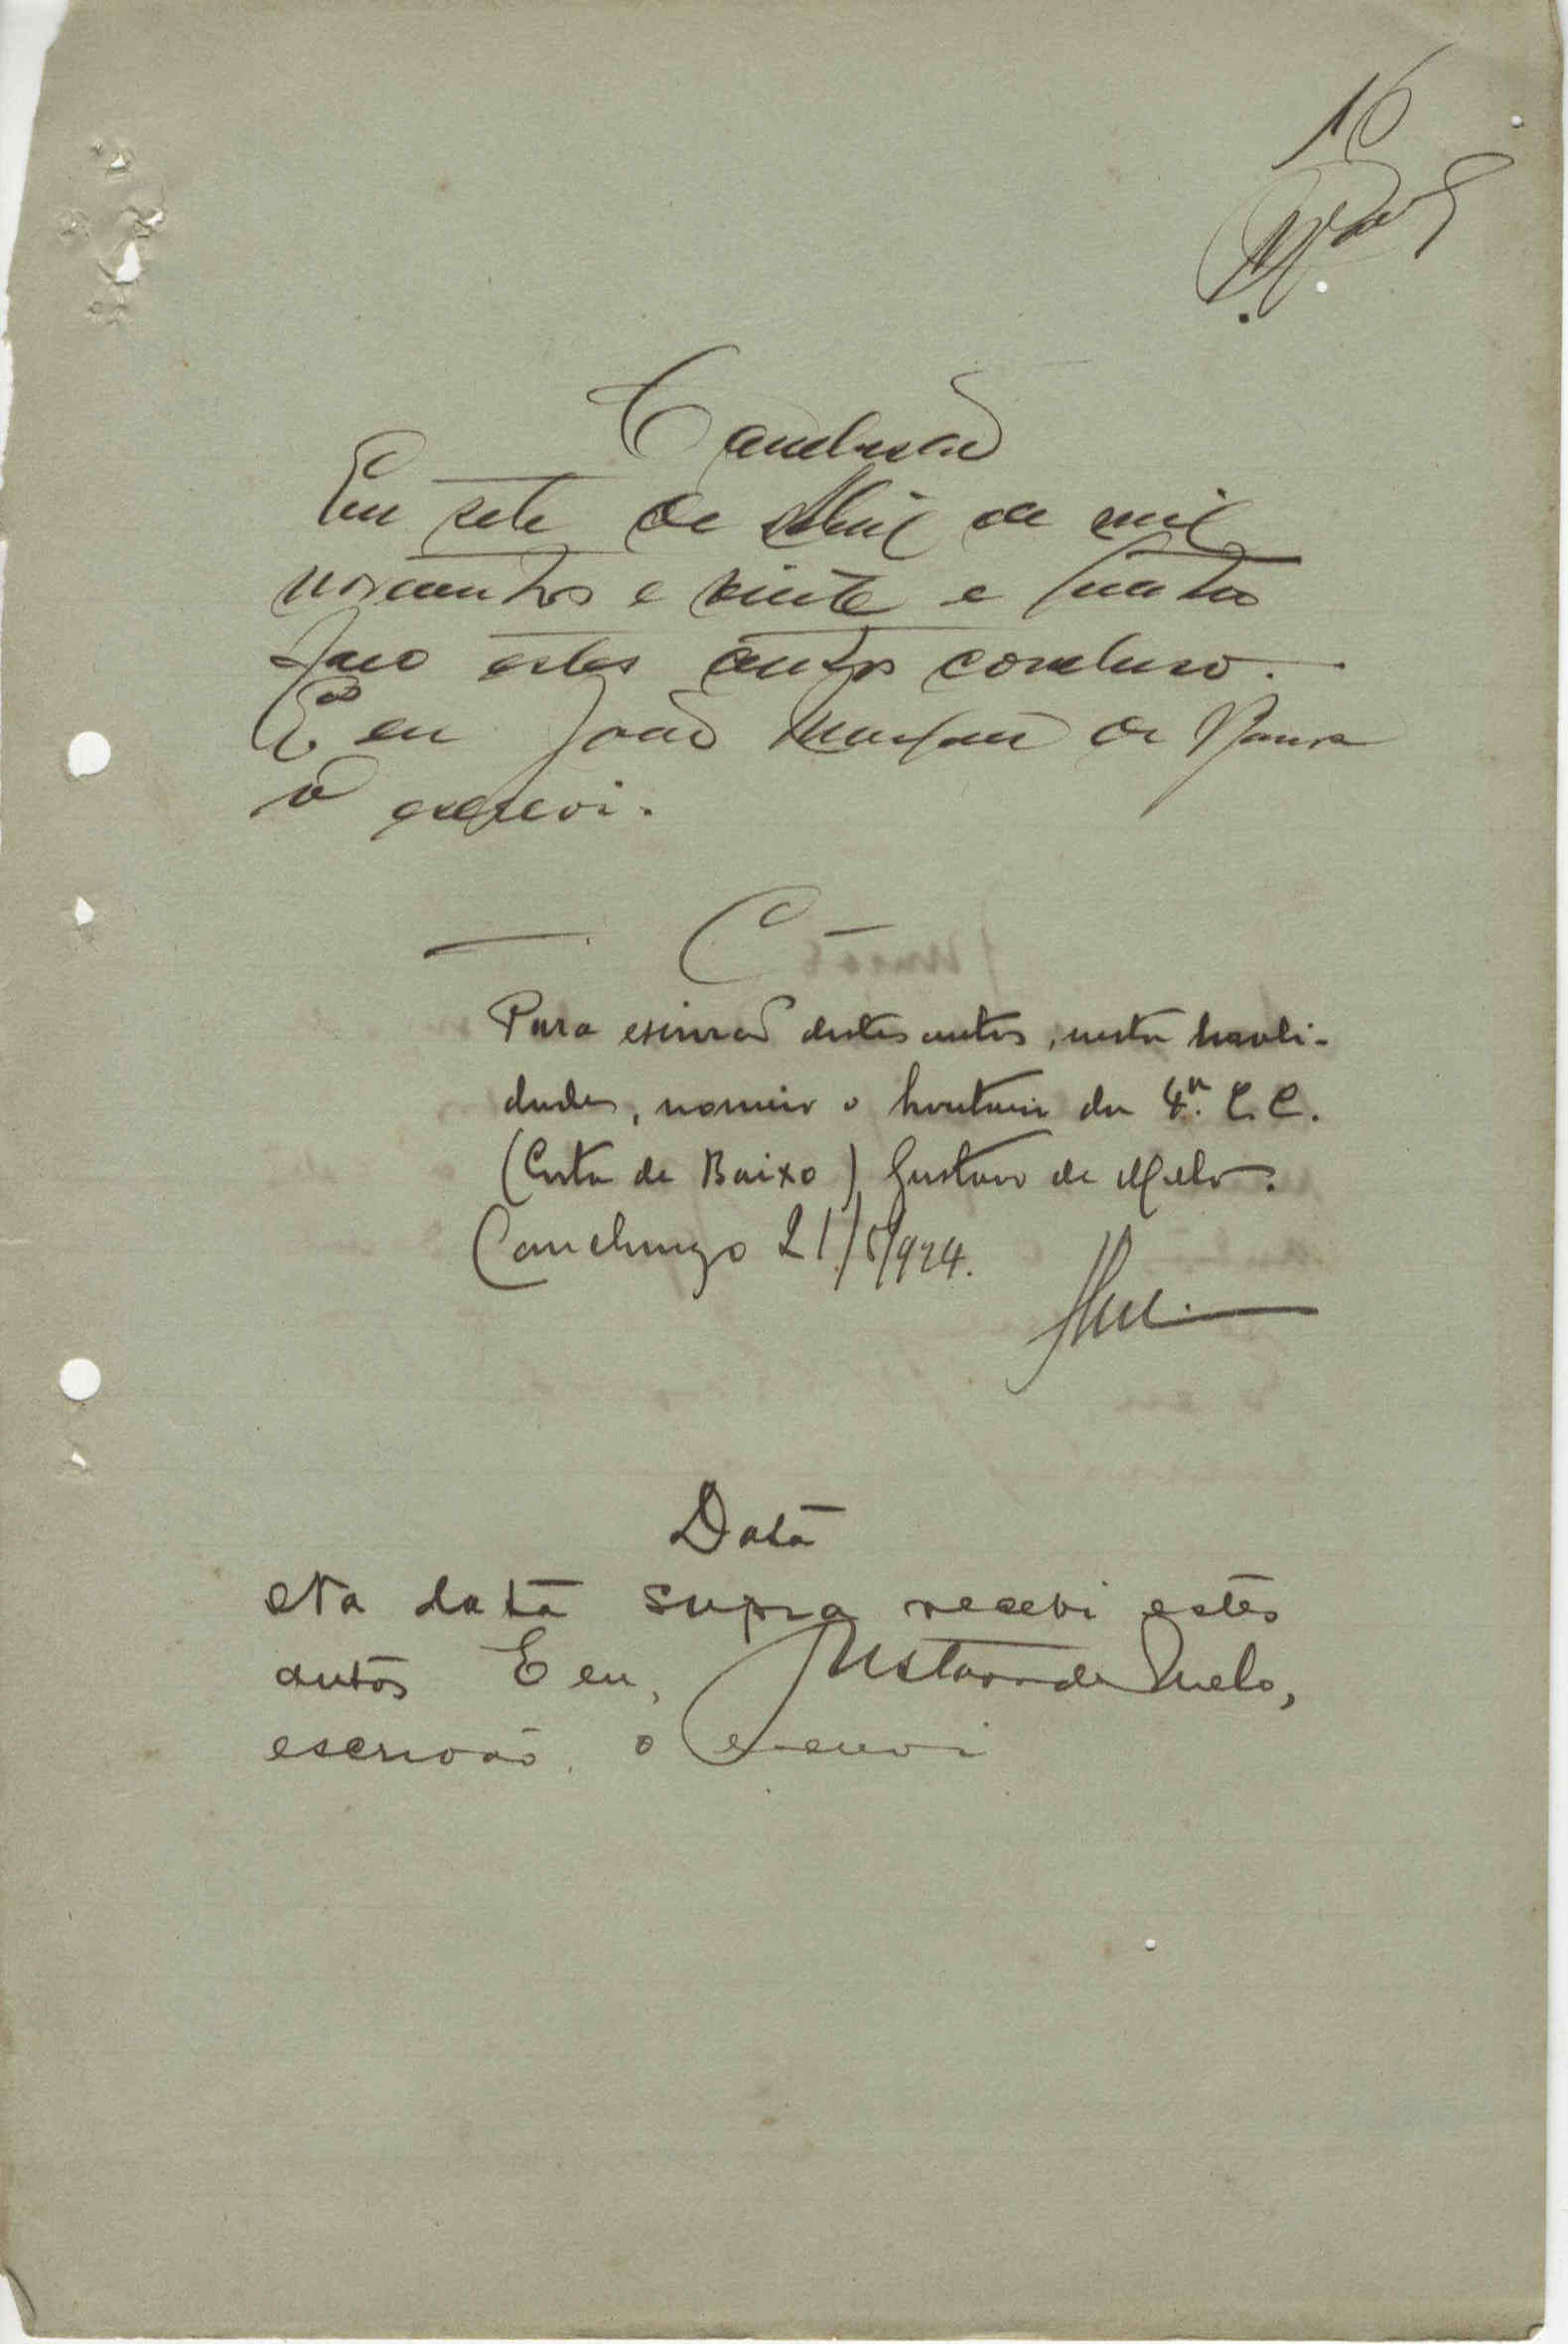 16
Conclusão
Em sete de Abril de mil
novecentos e vinte e quatro
faço estes autos concluso.
E eu João de
o escrevi.
C
Para escrivão destes autos, nesta locali-
dade, nomeio o da 4ª. C. C.
(Costa de Baixo) Gustavo de Melo.
Canchungo 21/5/924.
Data
Na data supra recebi estes
autos E eu, Gustavo de Melo,
escrivão, o escrevi